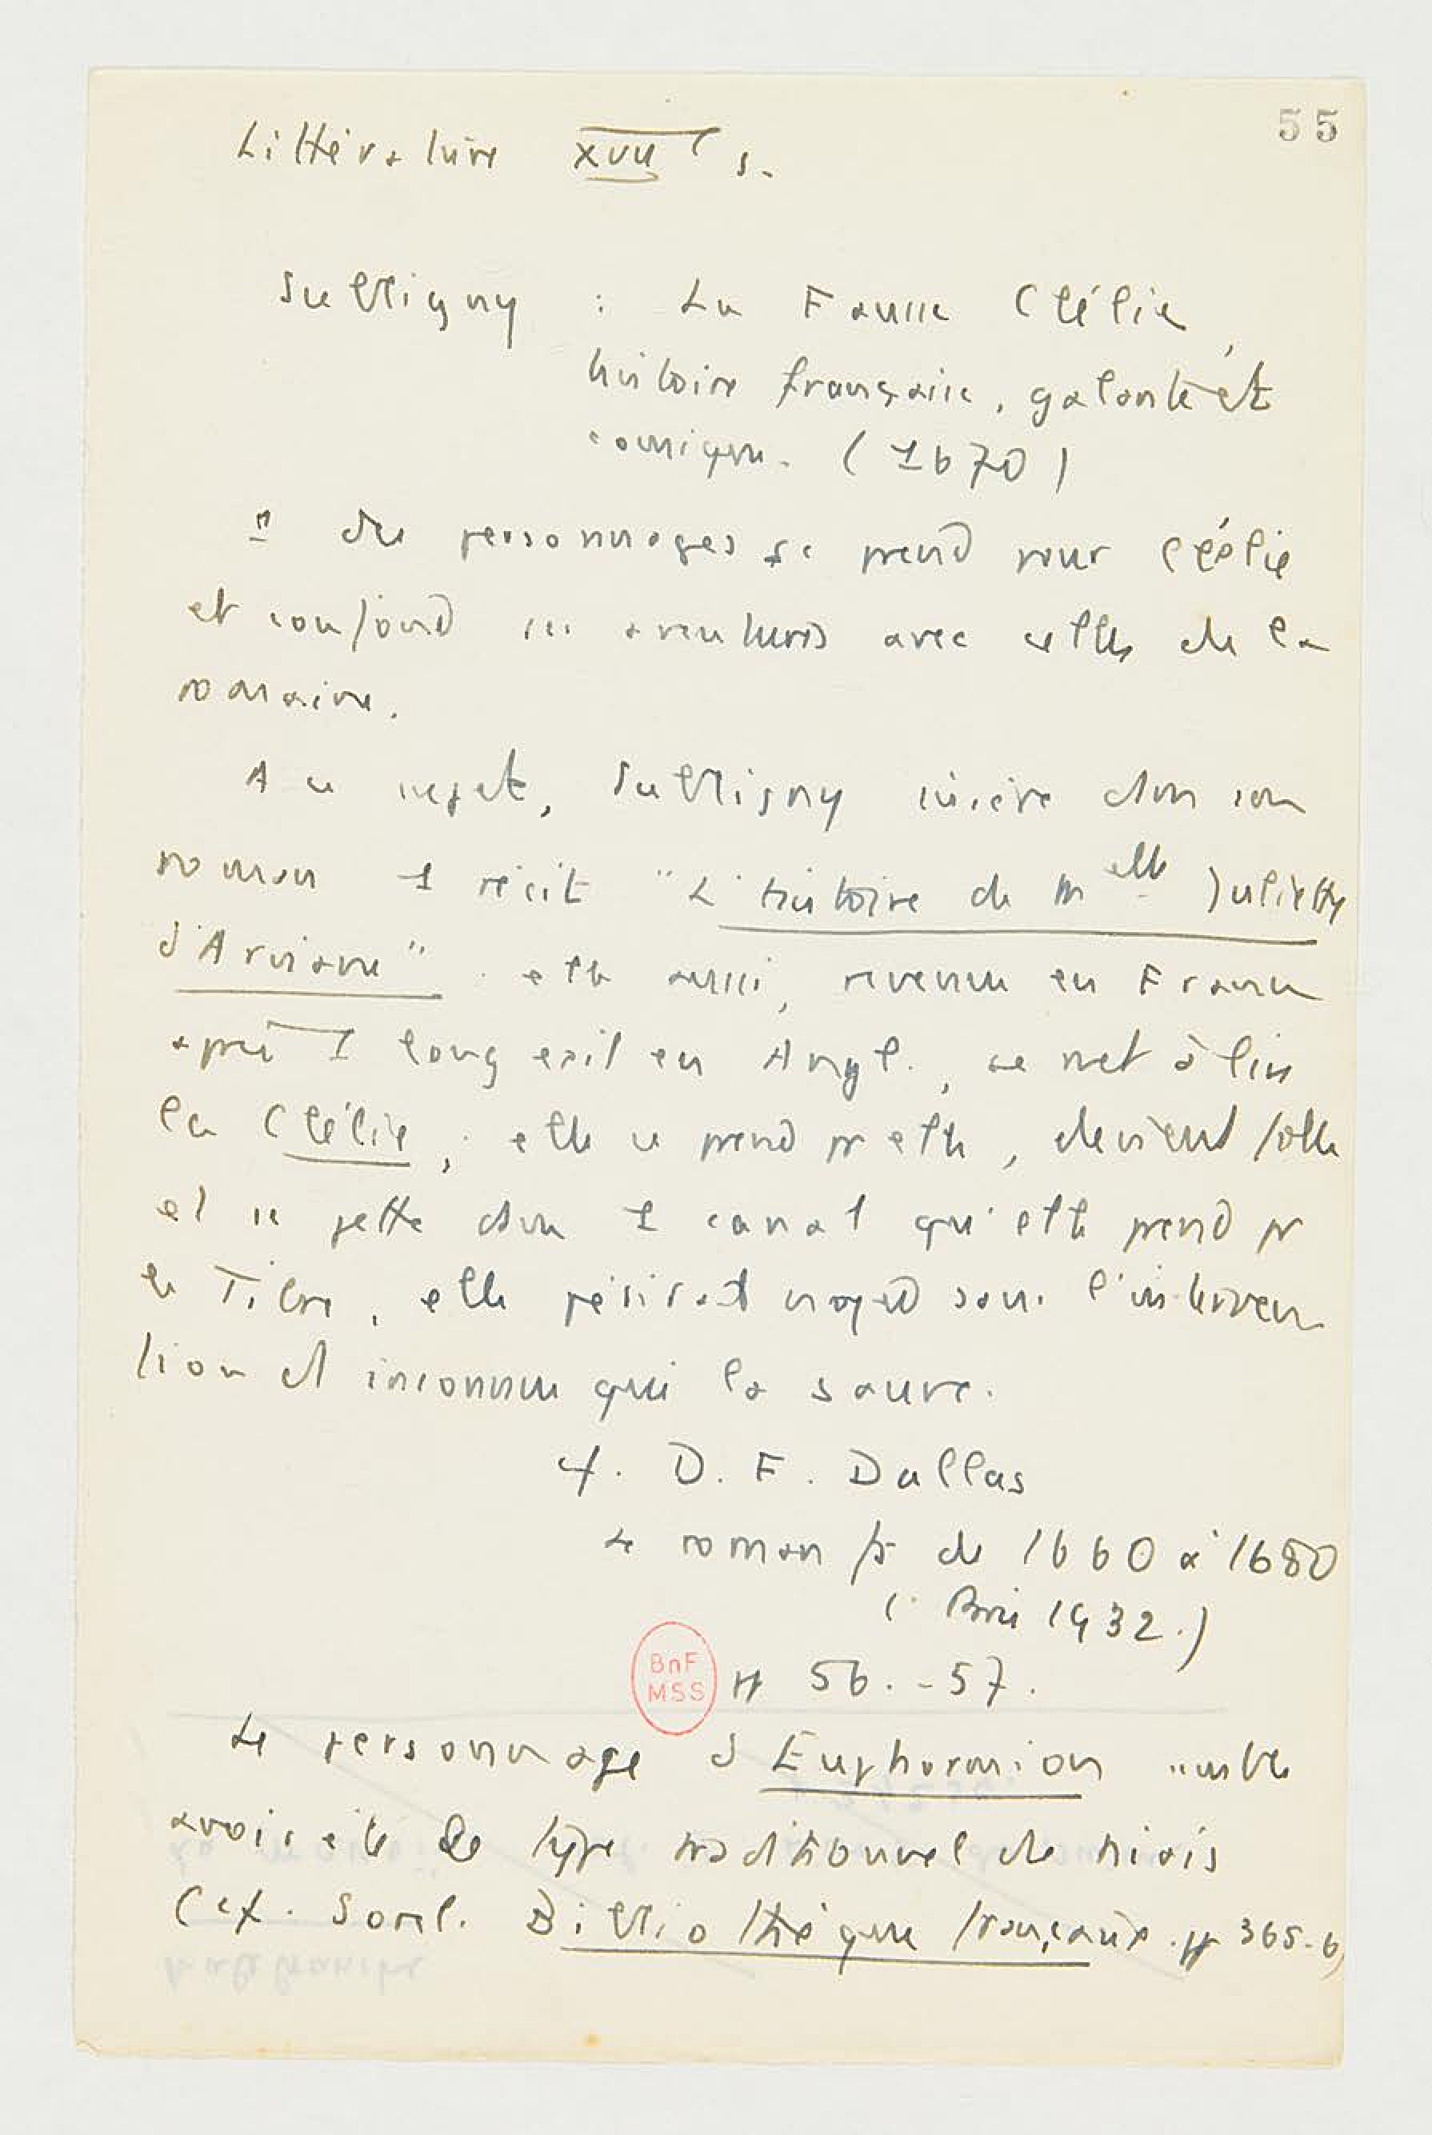 55
Littérature XVIIe s.
Subligny : La Fausse Clélie,
histoire française, galante et
comique. (1670)
1 des personnages se prend pour Clélie
et confond ses aventures avec celles de la
romaine.
A ce sujet, Subligny insère dans son
roman 1 récit "L'histoire de Melle Juliette
d'Arviane" . elle aussi, revenue en France
après 1 long exil en Angl., se met à lire
la Clélie ; elle se prend pr elle, devient folle
et se jette dans 1 canal qu'elle prend pr
le Tibre, elle périrait noyée sans l'interven
tion d'1 inconnu qui la sauve.
cf. D. F. Dallas
Le roman fs de 1660 à 1680
(Paris 1932.)
pp 56.-57.
BnF
MSS
Le personnage d'Euphormion semble
avoir été le type traditionnel de niais
(cf. Sorel. Bibliothèque française. pp 365-6)